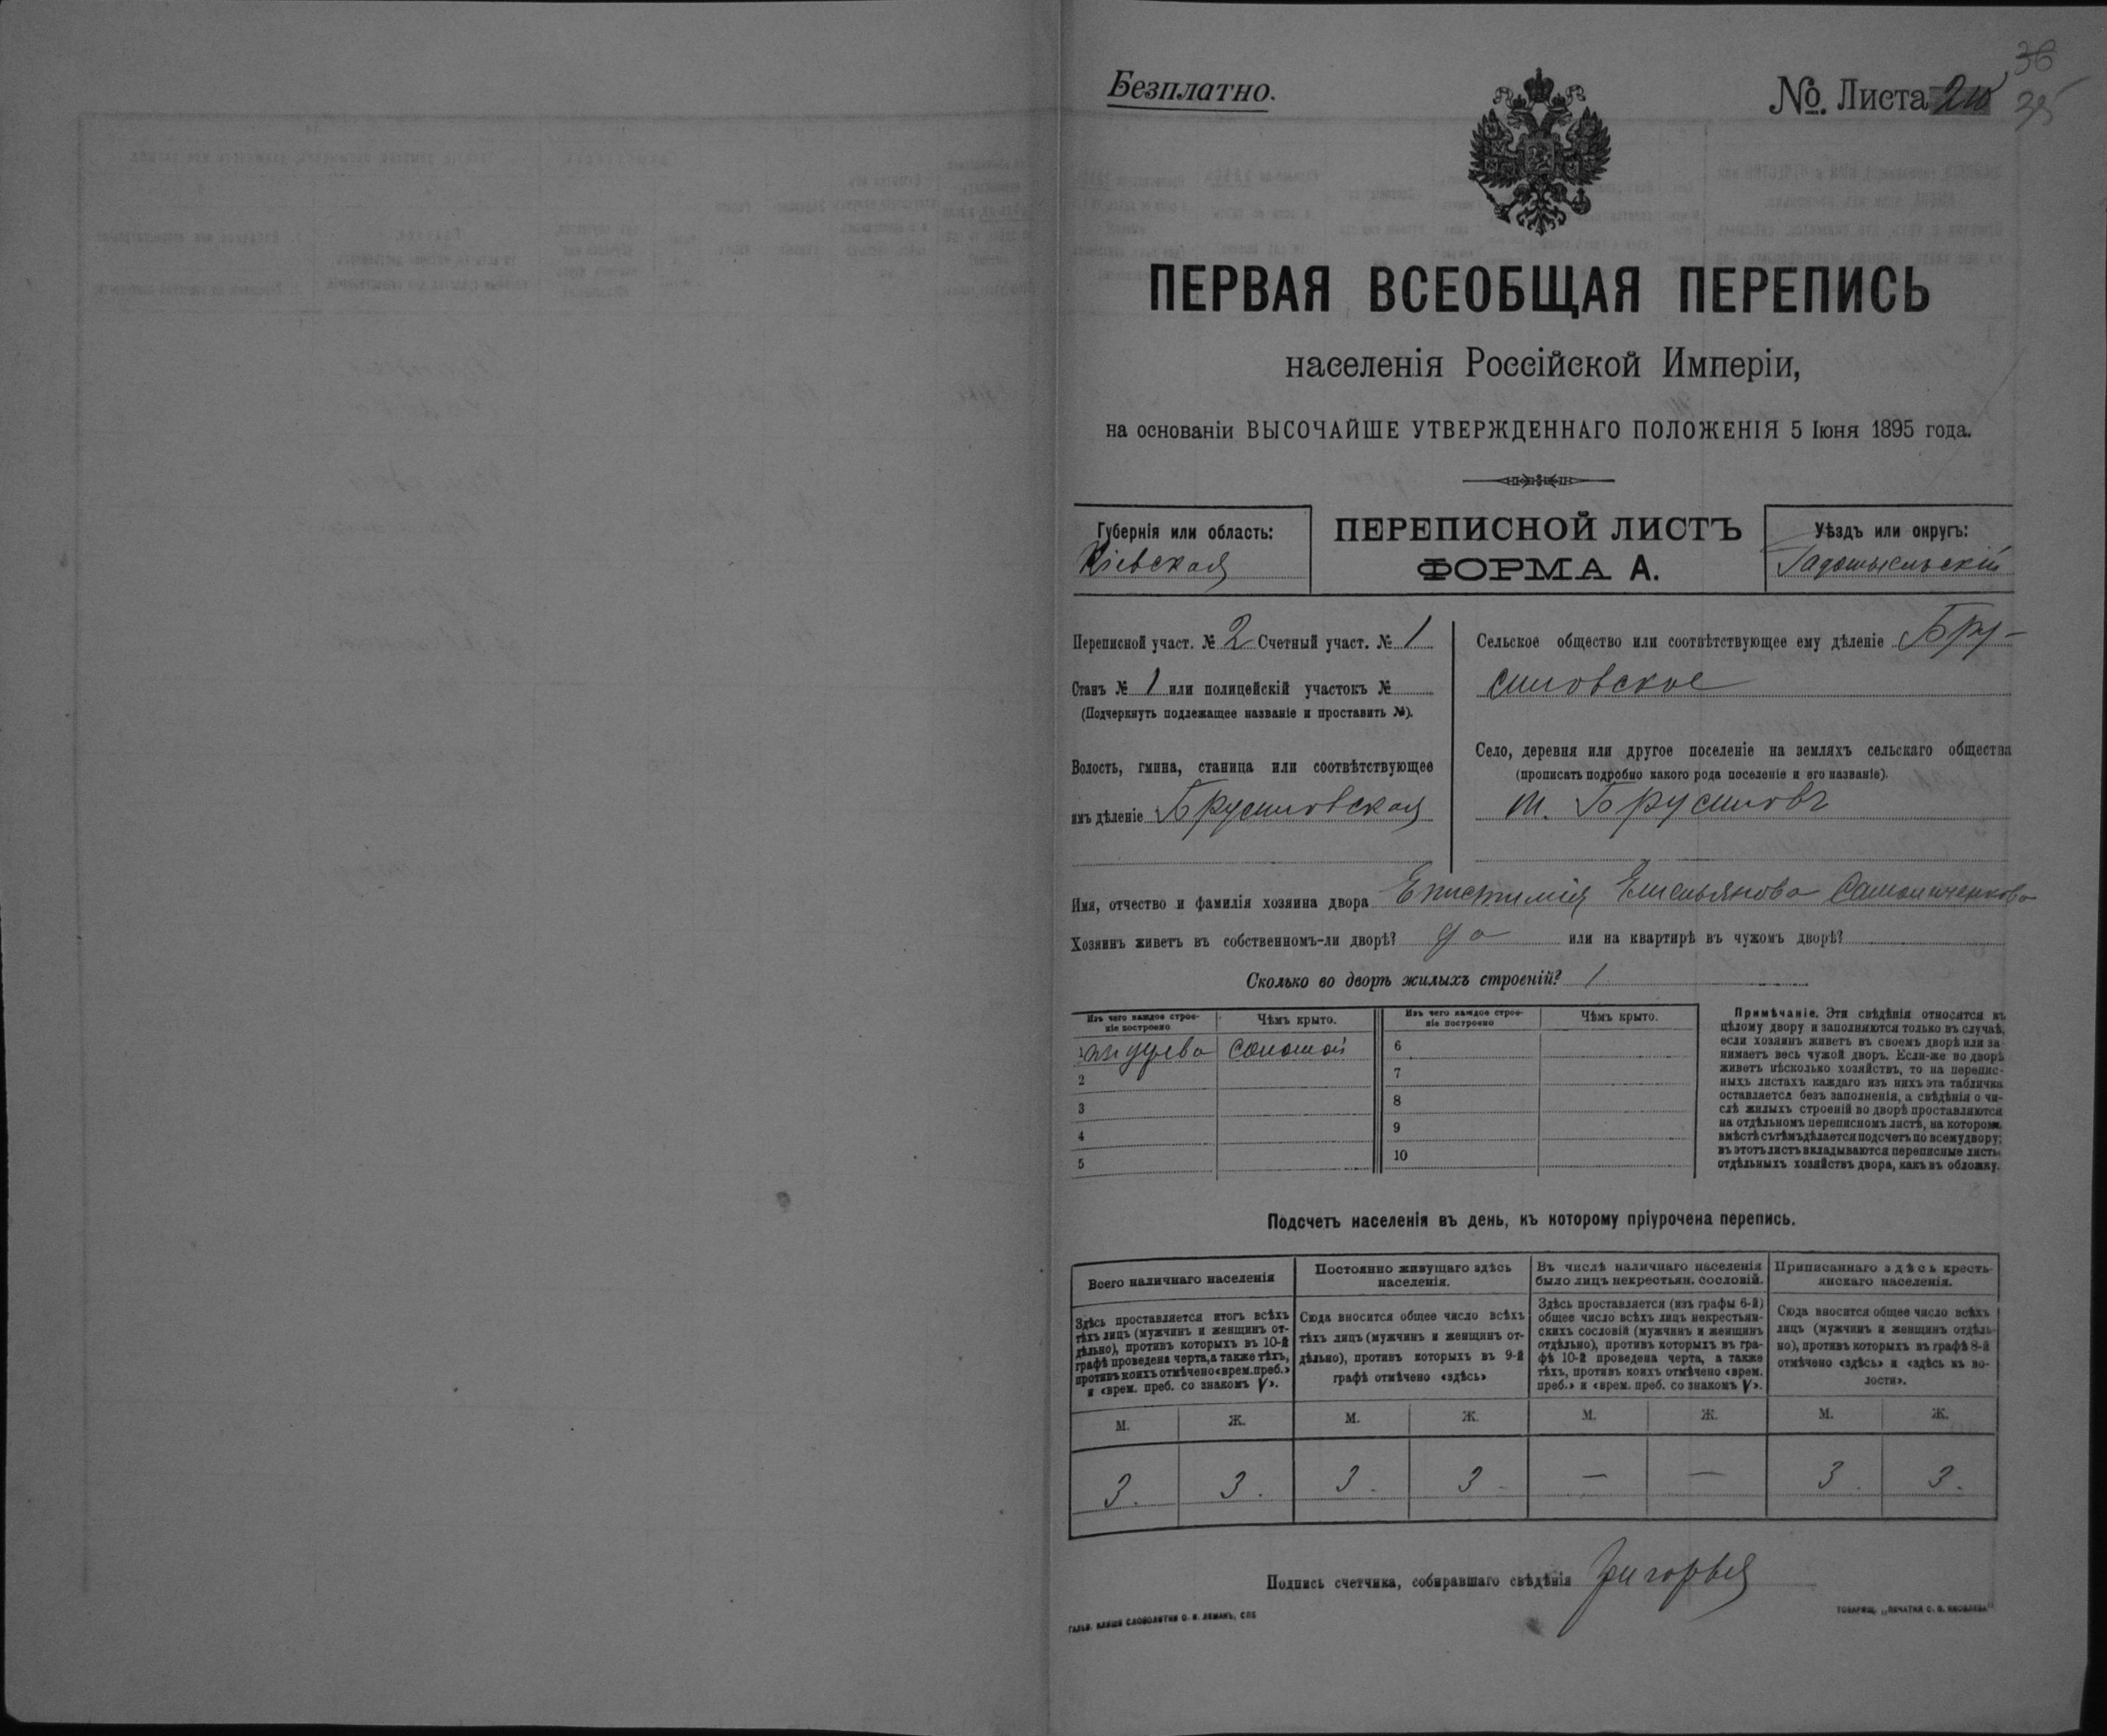 36
Безплатно.
№ Листа
35
ПЕРВАЯ ВСЕОБЩАЯ ПЕРЕПИСЬ
населенія Россійской Имперіи,
на основаніи ВЫСОЧАЙШЕ УТВЕРЖДЕННАГО ПОЛОЖЕНІЯ 5 Іюня 1895 года.
Губернія или область:
Кіевская
ПЕРЕПИСНОЙ ЛИСТЪ
ФОРМА А.
Уѣздъ или округъ:
Радомысльскій
Переписной участ. № 2 Счетный участ. № 1
Станъ № 1 или полицейскій участокъ №
(Подчеркнуть подлежащее названіе и проставить №).
Волость, гмина, станица или соотвѣтствующее
имъ дѣленіе Брусиловская
Сельское общество или соотвѣтствующее ему дѣленіе Бру-
силовское
Село, деревня или другое поселеніе на земляхъ сельскаго общества
(прописать подробно какого рода поселеніе и его названіе).
м. Брусиловъ
Имя, отчество и фамилія хозяина двора Епистимія Емельянова
Хозяинъ живетъ въ собственномъ-ли дворѣ? да или на квартирѣ въ чужомъ дворѣ?
Сколько во дворѣ жилыхъ строеній? 1
Изъ чего каждое строе-
ніе построено
Чѣмъ крыто.
Изъ чего каждое строе-
ніе построено
Чѣмъ крыто.
1 изъ дерева соломой
6
2
7
3
8
4
9
5
10
Примѣчаніе. Эти свѣдѣнія относятся къ
цѣлому двору и заполняются только въ случаѣ,
если хозяинъ живетъ въ своемъ дворѣ или за
нимаетъ весь чужой дворъ. Если-же во дворѣ
живетъ нѣсколько хозяйствъ, то на перепис-
ныхъ листахъ каждаго изъ нихъ эта табличка
оставляется безъ заполненія, а свѣдѣнія о чи-
слѣ жилыхъ строеній во дворѣ проставляются
на отдѣльномъ переписномъ листѣ, на которомъ
вмѣстѣ съ тѣмъ дѣлается подсчетъ по всему двору;
въ этотъ листъ вкладываются переписные листы
отдѣльныхъ хозяйствъ двора, какъ въ обложку.
Подсчетъ населенія въ день, къ которому пріурочена перепись.
Всего наличнаго населенія
Здѣсь проставляется итогъ всѣхъ
тѣхъ лицъ (мужчинъ и женщинъ от-
дѣльно), противъ которыхъ въ 10-й
графѣ проведена черта, а также тѣхъ,
противъ коихъ отмѣчено «врем. преб.»
и «врем. преб. со знакомъ V».
Постоянно живущаго здѣсь
населенія.
Сюда вносится общее число всѣхъ
тѣхъ лицъ (мужчинъ и женщинъ от-
дѣльно), противъ которыхъ въ 9-й
графѣ отмѣчено «здѣсь»
Въ числѣ наличнаго населенія
было лицъ некрестьян. сословій.
Здѣсь проставляется (изъ графы 6-й)
общее число всѣхъ лицъ некрестьян-
скихъ сословій (мужчинъ и женщинъ
отдѣльно), противъ которыхъ въ гра-
фѣ 10-й проведена черта, а также
тѣхъ, противъ коихъ отмѣчено «врем.
преб.» и «врем. преб. со знакомъ V».
Приписаннаго здѣсь кресть-
янскаго населенія.
Сюда вносится общее число всѣхъ
лицъ (мужчинъ и женщинъ отдѣль-
но), противъ которыхъ въ графѣ 8-й
отмѣчено «здѣсь» и «здѣсь въ во-
лости».
М. Ж. М. Ж. М. Ж. М. Ж.
3. 3. 3. 3. — — 3. 3.
Подпись счетчика, собиравшаго свѣдѣнія
ГАЛЬВ. КЛИШЕ СЛОВОЛИТНИ О. И. ЛЕМАНЪ, СПБ
ТОВАРИЩ. „ПЕЧАТНЯ С. П. ЯКОВЛЕВА"